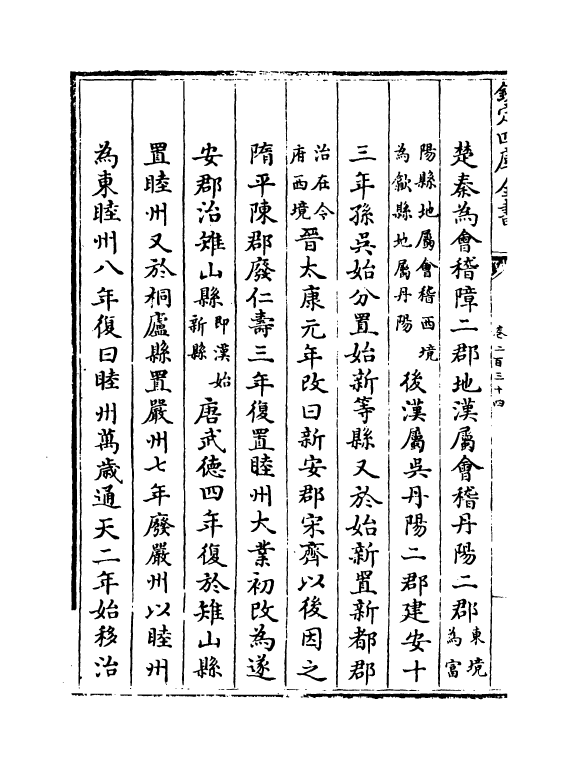 欽定四庫全書
卷二百三十四
楚秦為會稽障二郡地漢屬會稽丹陽二郡東境為富
陽縣地屬會稽西境為歙縣地屬丹陽後漢屬吳丹陽二郡建安十
三年孫吳始分置始新等縣又於始新置新都郡
治在今府西境晉太康元年改曰新安郡宋齊以後因之
隋平陳郡廢仁壽三年復置睦州大業初改為遂
安郡治雉山縣即漢始新縣唐武德四年復於雉山縣
置睦州又於桐廬縣置嚴州七年廢嚴州以睦州
為東睦州八年復曰睦州萬歲通天二年始移治